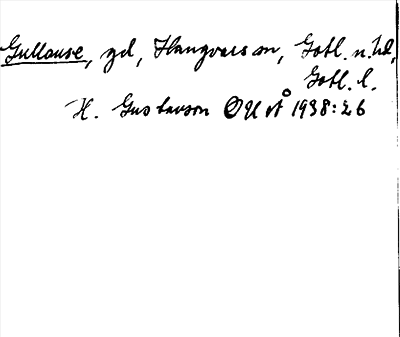 Gullause, gd, Hangvars sn, Gotl. n. hd,
Gotl. l.
H. Gustavson OUÅ 1938:26